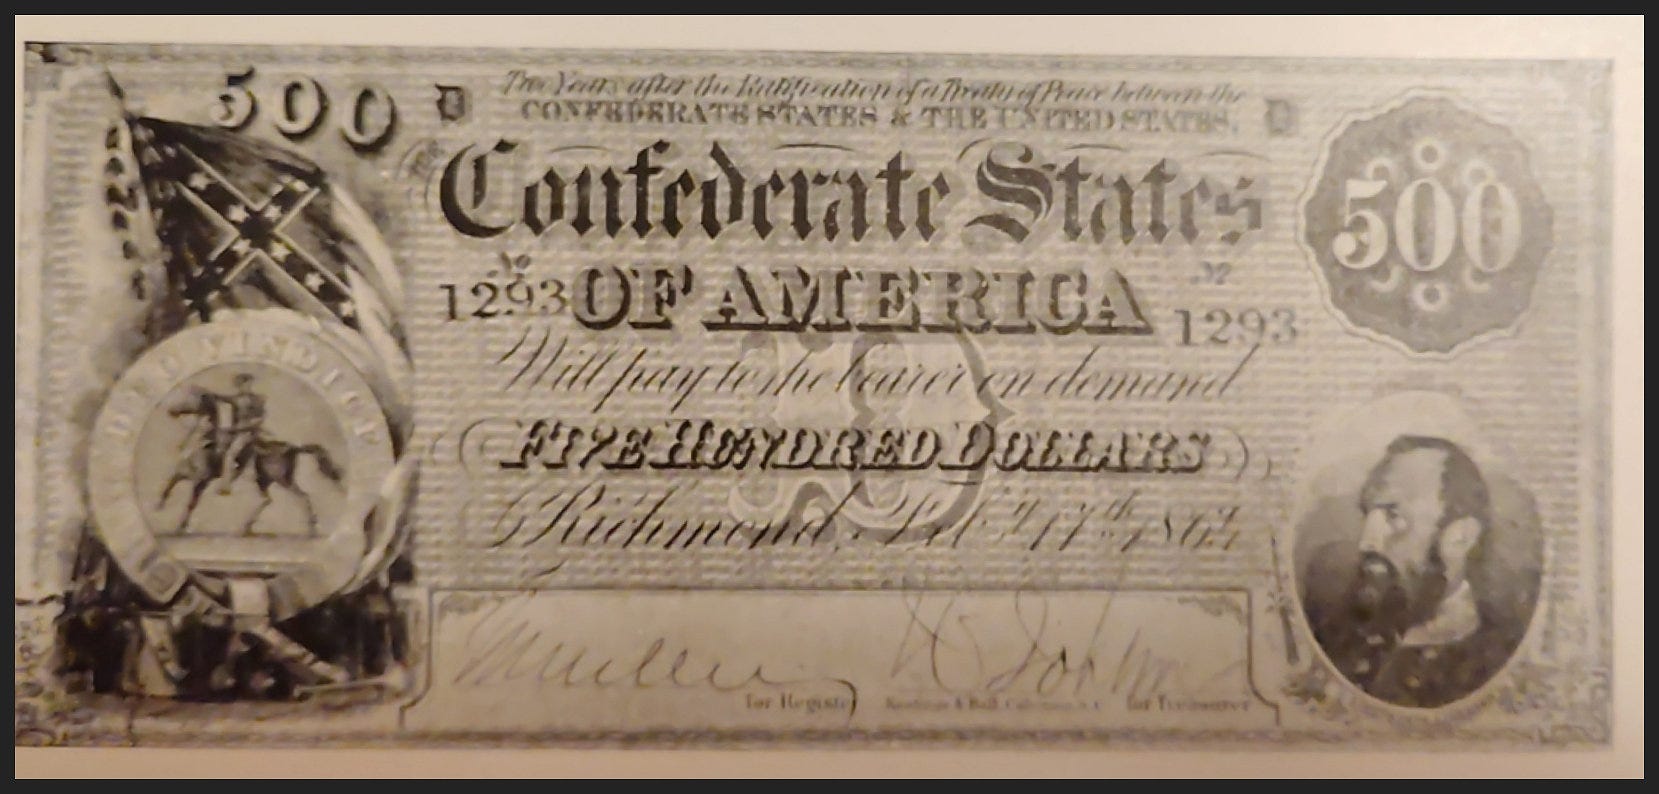 500
D
Two Years after the Ratification of a Treaty of Peace between the
D
CONFEDERATE STATES & THE UNITED STATES.
THE
Confederate States
500
No
No
1293 OF AMERICA 1293
Will pay to the bearer on demand
D
FIVE HUNDRED DOLLARS
Richmond, Feb.y 17th 1864
DEO VINDICE
for Register
Keatinge & Ball, Columbia, S.C.
for Treasurer